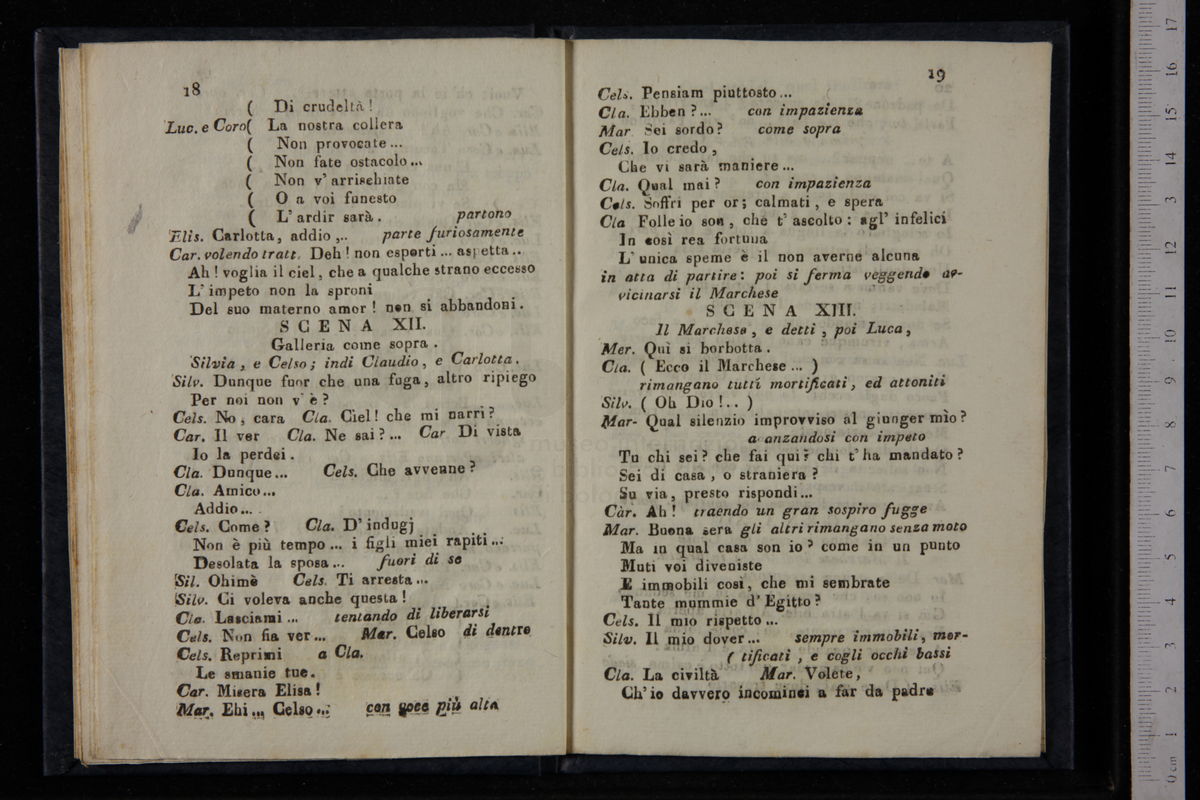 18
( Di crudeltà!
Luc. e Coro( La nostra collera
( Non provocate...
( Non fate ostacolo...
( Non v' arrischiate
( O a voi funesto
( L' ardir sarà. partono
Elis. Carlotta, addio,.. parte furiosamente
Car. volendo tratt. Deh! non esporti... aspetta..
Ah! voglia il ciel, che a qualche strano eccesso
L' impeto non la sproni
Del suo materno amor! non si abbandoni.
SCENA XII.
Galleria come sopra.
Silvia, e Celso; indi Claudio, e Carlotta.
Silv. Dunque fuor che una fuga, altro ripiego
Per noi non v' è?
Cels. No, cara Cla. Ciel! che mi narri?
Car. Il ver Cla. Ne sai?... Car Di vista
Io la perdei.
Cla. Dunque... Cels. Che avvenne?
Cla. Amico...
Addio...
Cels. Come? Cla. D' indugj
Non è più tempo... i figli miei rapiti...
Desolata la sposa... fuori di se
Sil. Ohimè Cels. Ti arresta...
Silv. Ci voleva anche questa!
Cla. Lasciami... tentando di liberarsi
Cels. Non fia ver... Mar. Celso di dentro
Cels. Reprimi a Cla.
Le smanie tue.
Car. Misera Elisa!
Mar. Ehi... Celso... con voce più alta
19
Cels. Pensiam piuttosto...
Cla. Ebben?... con impazienza
Mar. Sei sordo? come sopra
Cels. Io credo,
Che vi sarà maniere...
Cla. Qual mai? con impazienza
Cels. Soffri per or; calmati, e spera
Cla Folle io son, che t' ascolto: agl' infelici
In così rea fortuna
L' unica speme è il non averne alcuna
in atta di partire: poi si ferma veggendo av-
vicinarsi il Marchese
SCENA XIII.
Il Marchese, e detti, poi Luca,
Mer. Quì si borbotta.
Cla. ( Ecco il Marchese... )
rimangano tutti mortificati, ed attoniti
Silv. ( Oh Dio!.. )
Mar- Qual silenzio improvviso al giunger mio?
avanzandosi con impeto
Tu chi sei? che fai qui? chi t' ha mandato?
Sei di casa, o straniera?
Su via, presto rispondi...
Càr. Ah! traendo un gran sospiro fugge
Mar. Buona sera gli altri rimangano senza moto
Ma in qual casa son io? come in un punto
Muti voi diveniste
E immobili così, che mi sembrate
Tante mummie d' Egitto?
Cels. Il mio rispetto...
Silv. Il mio dover... sempre immobili, mor-
( tificati, e cogli occhi bassi
Cla. La civiltà Mar. Volete,
Ch' io davvero incominci a far da padre
0 cm 1 2 3 4 5 6 7 8 9 10 11 12 13 14 15 16 17